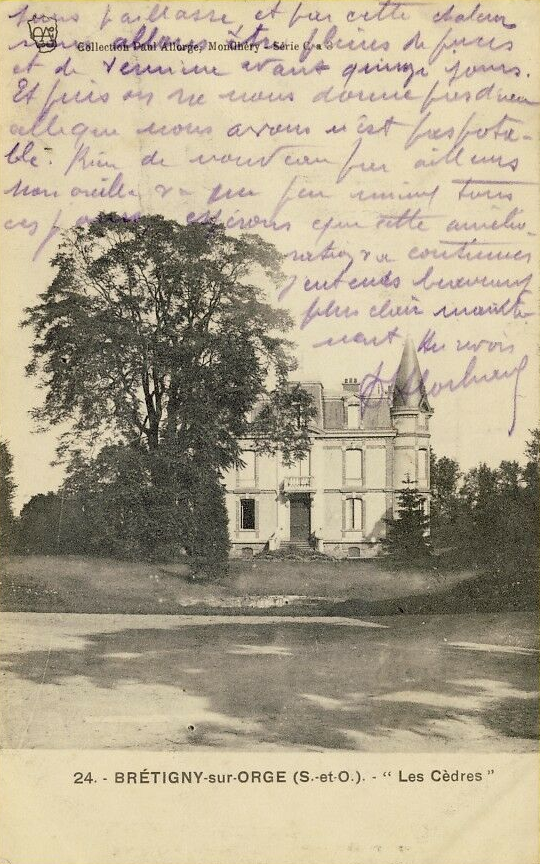 sous paillasse, et par cette chaleur
nous allons être pleines de puces
Collection Paul Allorge, Montlhéry - Série C. a 3
et de vermine avant quinze jours.
Et puis on ne nous donne pas d'eau
celle que nous avons n'est pas pota-
ble. Rien de nouveau par ailleurs
mon oreille va un peu mieux tous
ces jours espérons que cette amélio-
ration va continuer
j'entends beaucoup
plus clair mainte-
nant Au revoir
24. - BRÉTIGNY-sur-ORGE (S.-et-O.). - “ Les Cèdres ”